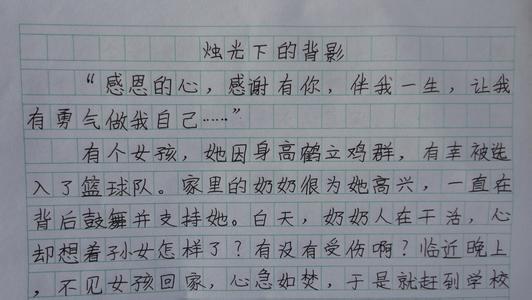 烛光下的背影
“感恩的心，感谢有你，伴我一生，让我
有勇气做我自己……”
有个女孩，她因身高鹤立鸡群，有幸被选
入了篮球队。家里的奶奶很为她高兴，一直在
背后鼓舞并支持她。白天，奶奶人在干活，心
却想着孙女怎样了？有没有受伤啊？临近晚上
，不见女孩回家，心急如焚，于是就赶到学校